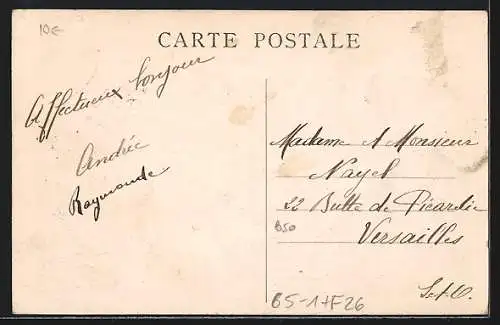 10€
CARTE POSTALE
Affectueux bonjour
Andrée
Raymonde
Madame & Monsieur
Nayel
22 Butte de Picardie
B50
Versailles
S.&O.
B5-1+F26